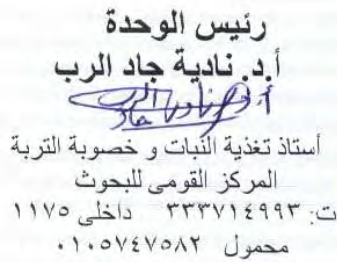 رئيس الوحدة
أ.د. نادية جاد الرب
أستاذ تغذية النبات و خصوبة التربة
المركز القومى للبحوث
ت: ٣٣٣٧١٤٩٩٣ داخلى ١١٧٥
محمول ٠١٠٥٧٤٧٥٨٢